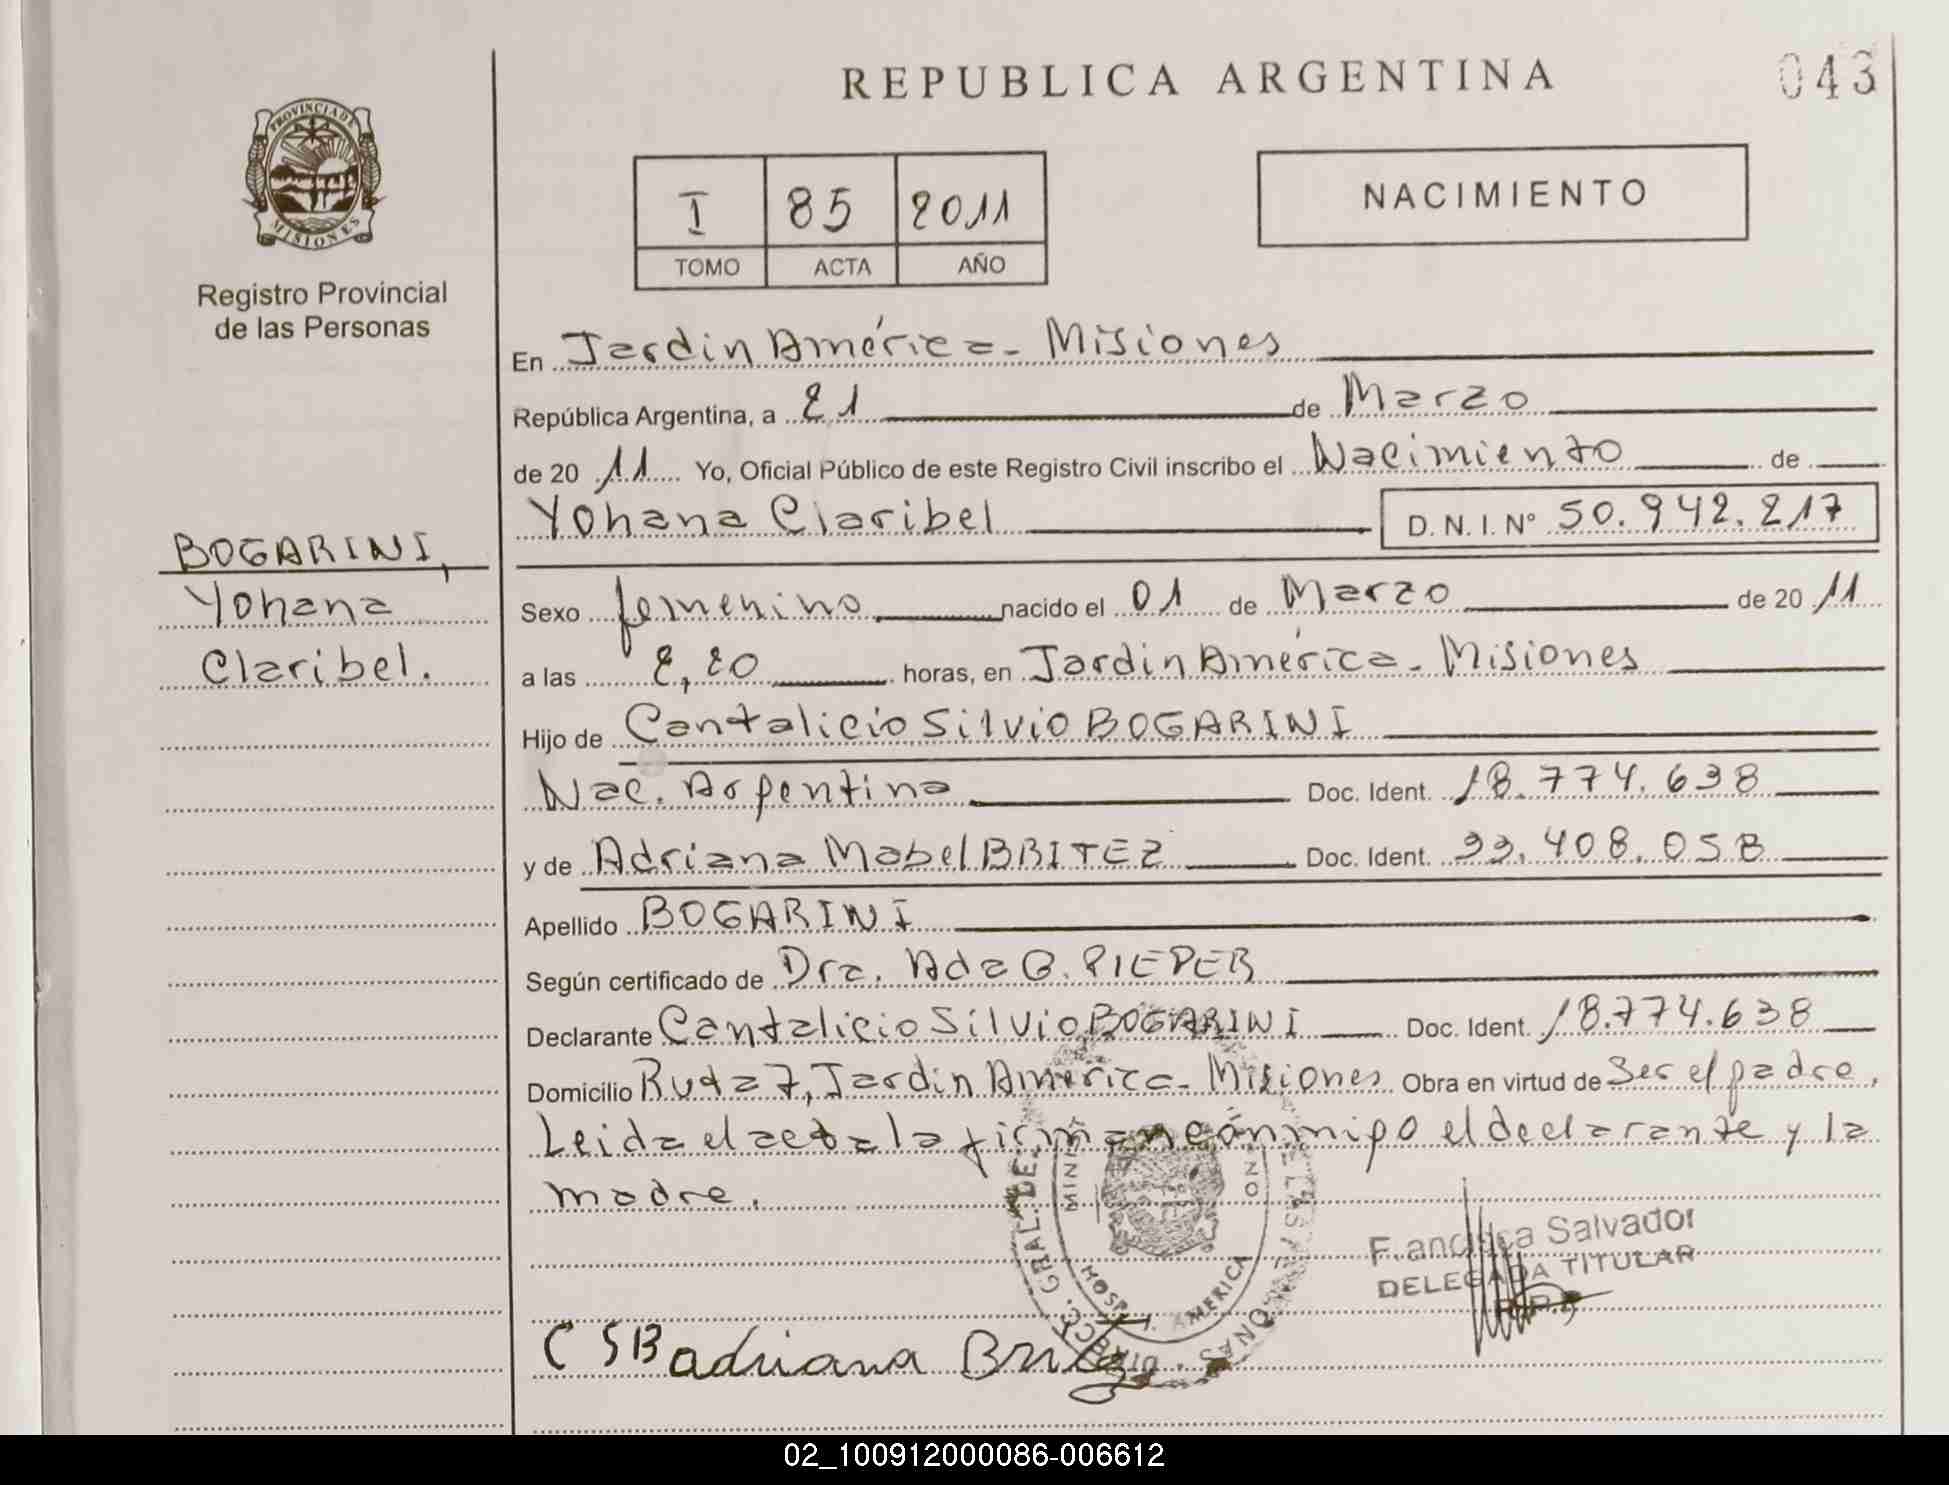 REPUBLICA ARGENTINA
043
PROVINCIA DE
MISIONES
Registro Provincial
de las Personas
I 85 2011
TOMO ACTA AÑO
NACIMIENTO
En Jardin América - Misiones
República Argentina, a 21 de Marzo
de 20 11 Yo, Oficial Público de este Registro Civil inscribo el Nacimiento de
Yohana Claribel D. N. I. Nº 50.942.217
BOGARINI,
Yohana
Claribel.
Sexo femenino nacido el 01 de Marzo de 20 11
a las 2,20 horas, en Jardin América - Misiones
Hijo de Cantalicio Silvio BOGARINI
Nac. Argentina Doc. Ident. 18.774.638
y de Adriana Mabel BRITEZ Doc. Ident. 33.408.058
Apellido BOGARINI
Según certificado de Dra. Ada G. PIEPER
Declarante Cantalicio Silvio BOGARINI Doc. Ident. 18.774.638
Domicilio Ruta 7, Jardin América - Misiones Obra en virtud de Ser el padre,
Leida el acta la firman conmigo el declarante y la
madre.
Francisca Salvador
DELEGADA TITULAR
R.P.P
C S B adriana Britez
02_100912000086-006612